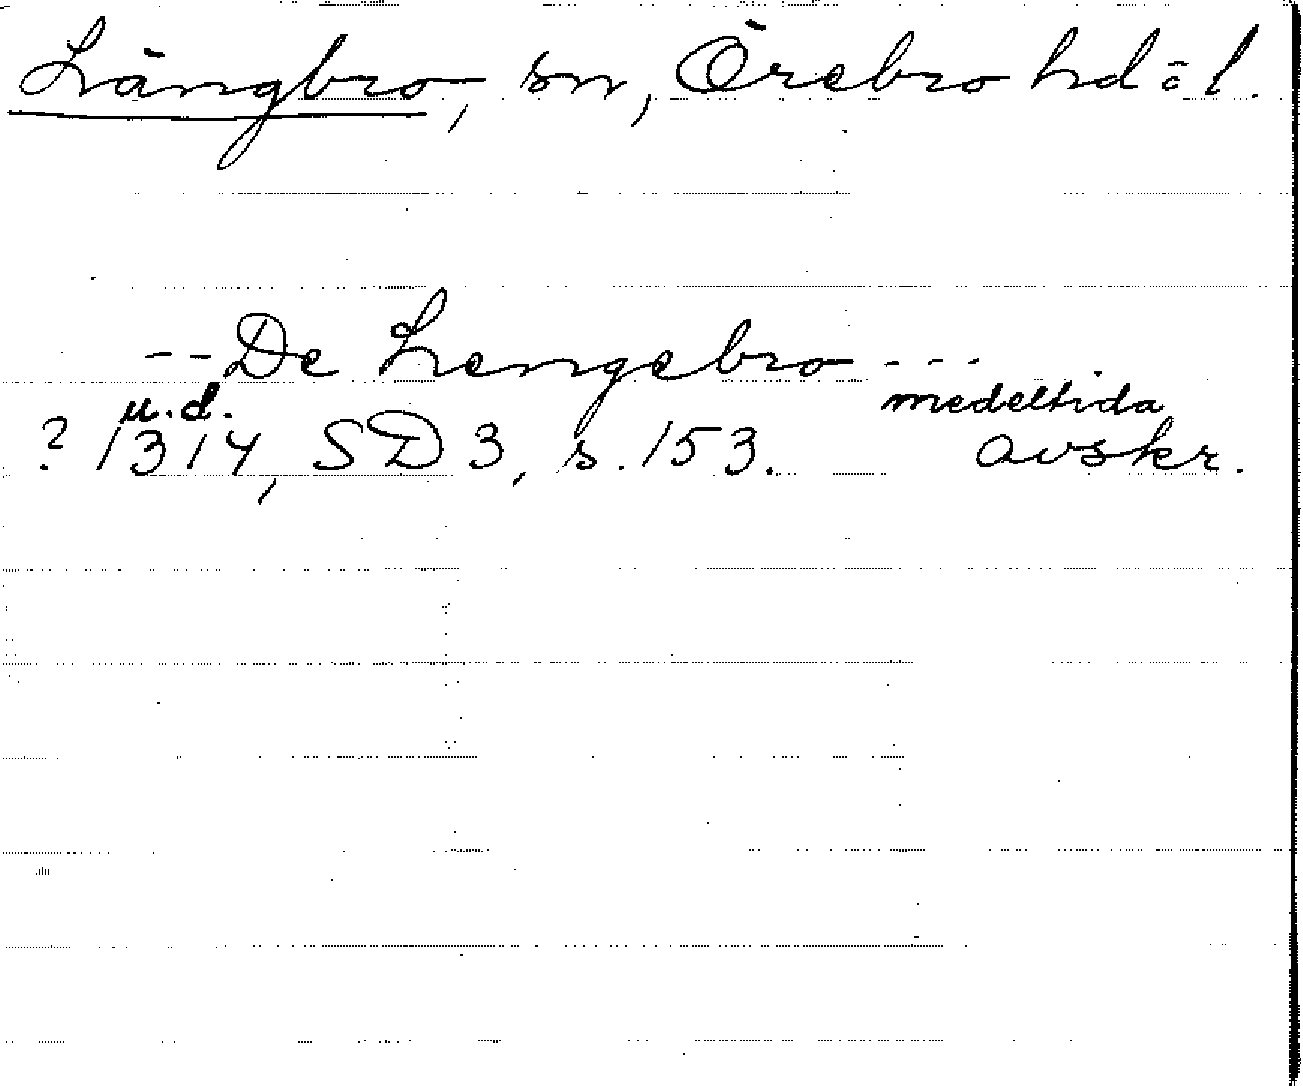 Längbro, sn, Örebro hd ö l.
-- De Lengebro ---
u.d. medeltida
? 1314, SD 3, s. 153. avskr.